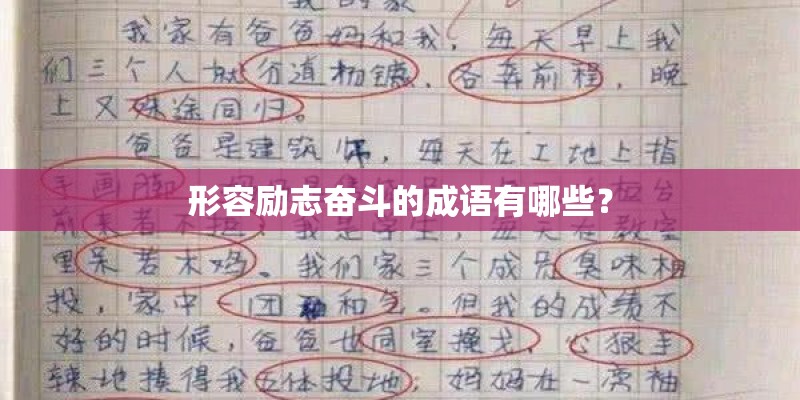 我的家
我家有爸爸妈和我，每天早上我
们三个人就分道扬镳、各奔前程，晚
上又殊途同归。
爸爸是建筑师，每天在工地上指
手画脚
形容励志奋斗的成语有哪些？
来者不拒
里呆若木鸡。我们家三个成员臭味相
投，家中一团和气。但我的成绩不
好的时候，爸爸也同室操戈、心狠手
辣地揍得我五体投地；妈妈在一旁袖